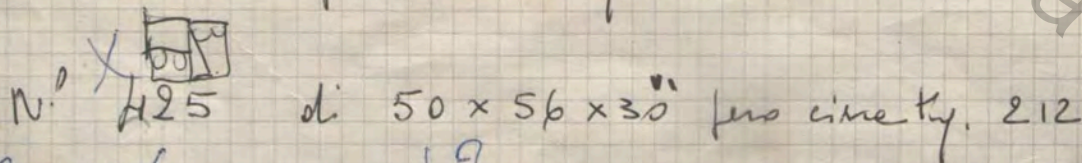 N.º 425 di 50 x 56 x 30" peso circa Kg. 212